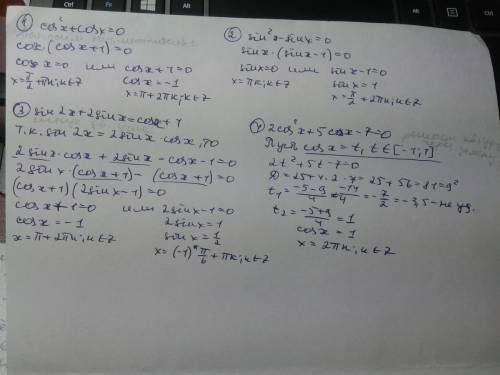 ① cos²x+cosx=0
cosx·(cosx+1)=0
cosx=0 или cosx+1=0
x=π/2+πn; n∈Z cosx=-1
x=π+2πk; k∈Z
② sin²x-sinx=0
sinx·(sinx-1)=0
sinx=0 или sinx-1=0
x=πk; k∈Z sinx=1
x=π/2+2πn; n∈Z
③ sin2x+2sinx=cosx+1
Т.к. sin2x=2sinx·cosx, то
2sinx·cosx+2sinx-cosx-1=0
2sinx·(cosx+1)-(cosx+1)=0
(cosx+1)(2sinx-1)=0
cosx+1=0 или 2sinx-1=0
cosx=-1 2sinx=1
x=π+2πn; n∈Z sinx=1/2
x=(-1)ᵏ π/6+πk; k∈Z
④ 2cos²x+5cosx-7=0
Пусть cosx=t, t∈[-1;1]
2t²+5t-7=0
D=25+4·2·7=25+56=81=9²
t₁=(-5-9)/4=-14/4=-7/2=-3,5-не уд.
t₂=(-5+9)/4=1
cosx=1
x=2πn; n∈Z
Fn
Ctrl
Alt